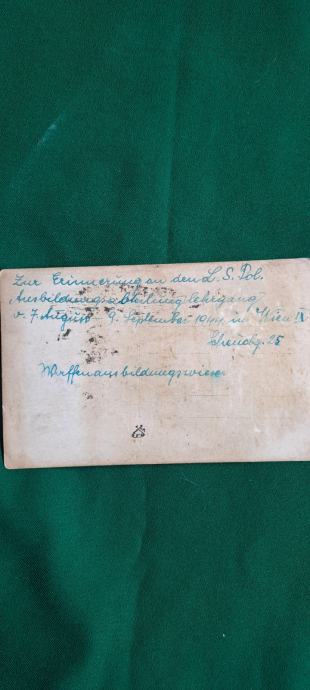 Zur Erinnerung an den L. S. Pol.
Ausbildungsabteilung lehrgang
v. 7. August 9. September 1944 in Wien IX
25
Waffenausbildungswiese